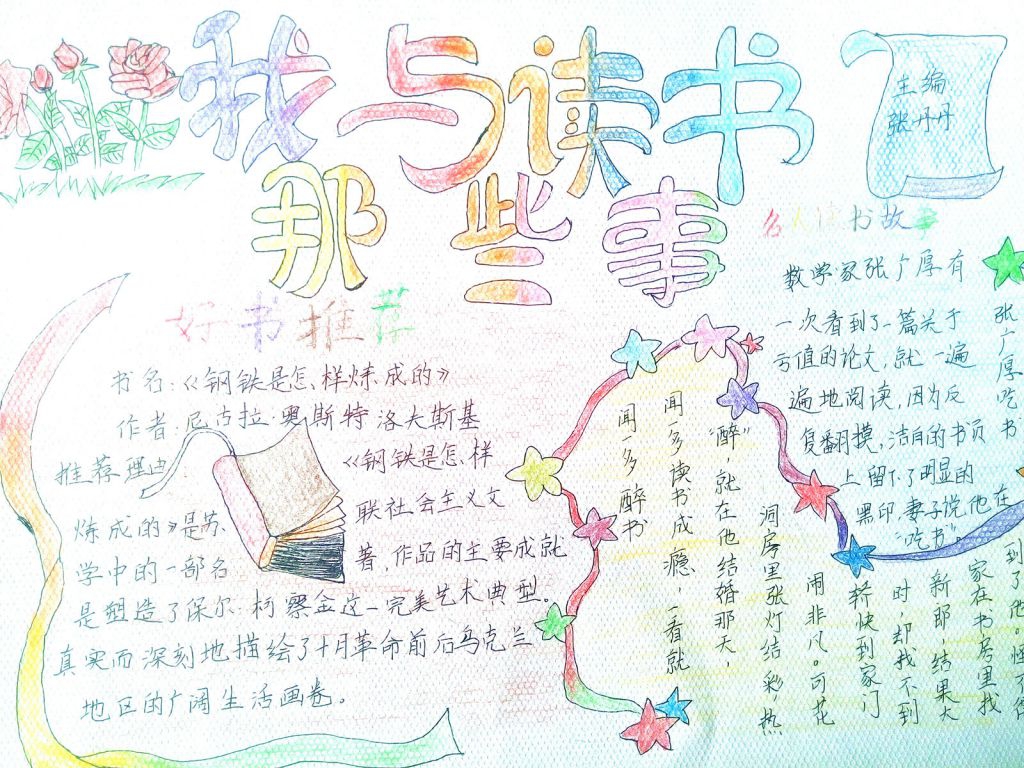 我与读书
那些事
主编
张丹丹
好书推荐
书名:《钢铁是怎样炼成的》
作者:尼古拉·奥斯特洛夫斯基
推荐理由
《钢铁是怎样
炼成的》是苏
联社会主义文
学中的一部名
著,作品的主要成就
是塑造了保尔·柯察金这一完美艺术典型。
真实而深刻地描绘了十月革命前后乌克兰
地区的广阔生活画卷。
名人读书故事
张广厚吃书
数学家张广厚有
一次看到了一篇关于
亏值的论文,就一遍
遍地阅读,因为反
复翻摸,洁白的书页
上留下了明显的
黑印,妻子说他在
“吃书”。
闻一多醉书
闻一多读书成瘾,一看就
“醉”,就在他结婚那天,
洞房里张灯结彩,热
闹非凡。可花
轿快到家门
时,却找不到
新郎,结果大
家在书房里找
到了他。怪不得